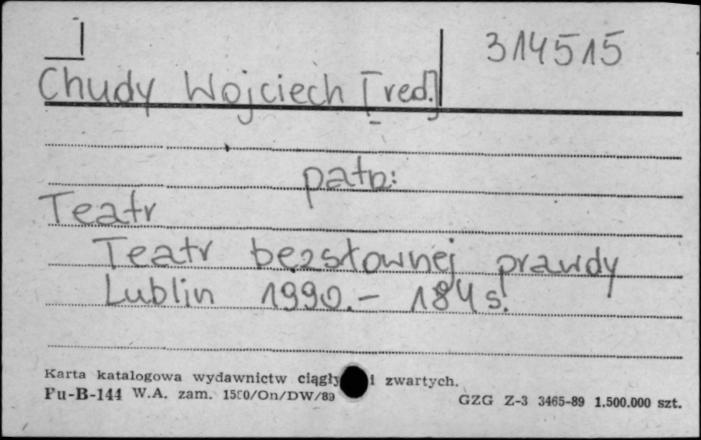 314515
Chudy Wojciech [red.]
patrz:
Teatr
Teatr bezsłownej prawdy
Lublin 1990.- 184 s.
Karta katalogowa wydawnictw ciągły i zwartych.
Pu-B-144 W.A. zam. 1580/On/DW/89
GZG Z-3 3465-89 1.500.000 szt.